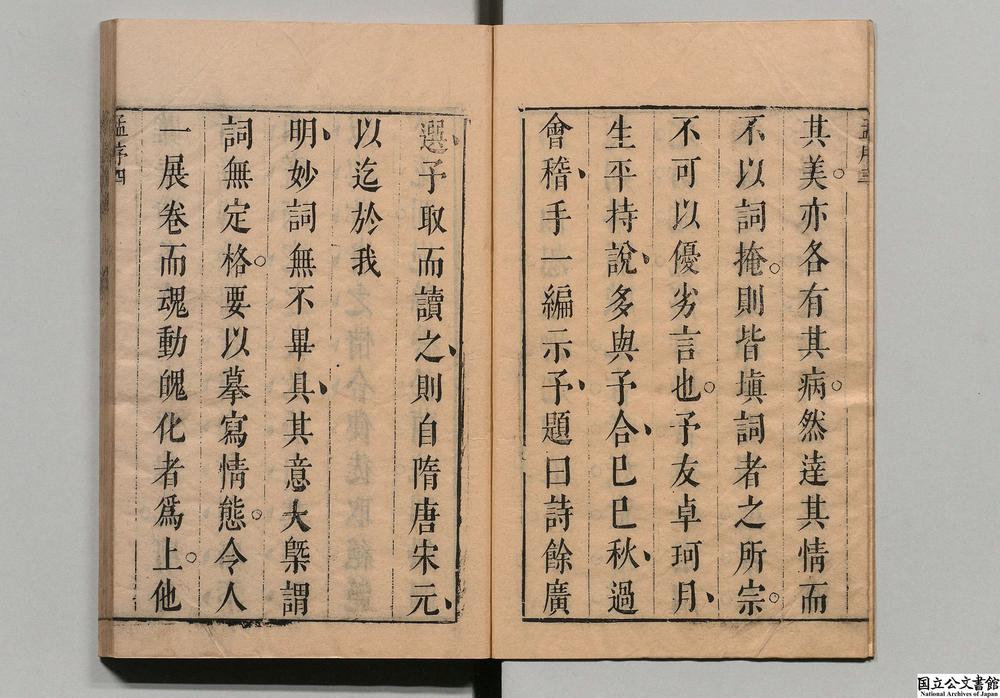 其美。亦各有其病。然達其情而
不以詞掩。則皆塡詞者之所宗。
不可以優劣言也。予友卓珂月、
生平持說、多與予合、己巳秋、過
會稽、手一編示予、題曰詩餘廣
選、予取而讀之、則自隋唐宋元、
以迄於我
明、妙詞無不畢具、其意大槩謂
詞無定格。要以摹寫情態。令人
一展卷而魂動魄化者爲上。他
孟序四
国立公文書館
National Archives of Japan